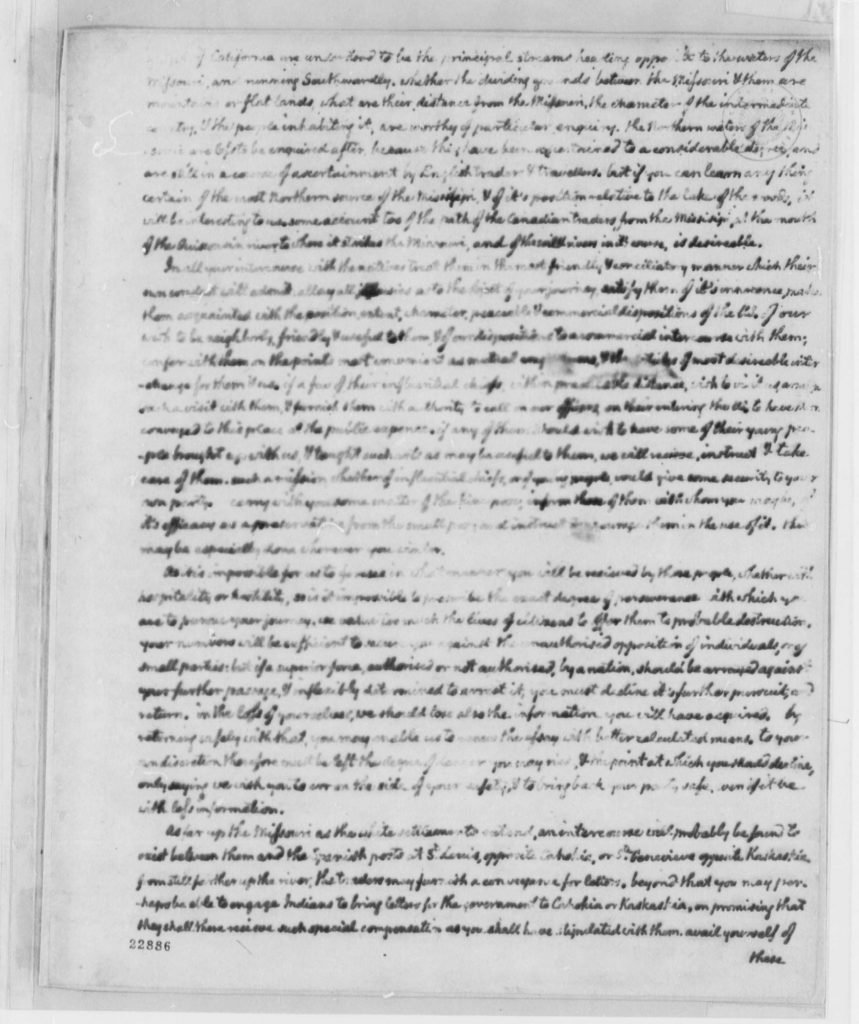 of California are understood to be the principal streams heading opposite to the waters of the
Missouri, and running Southwardly. whether the dividing grounds between the Missouri & them are
mountains or flat lands, what are their distance from the Missouri, the character of the intermediate
country, & the people inhabiting it, are worthy of particular enquiry. the Northern waters of the Mis-
souri are less to be enquired after, because they have been ascertained to a considerable degree, and
are still in a course of ascertainment by English traders & travellers. but if you can learn any thing
certain of the most Northern source of the Missisipi, & of it's position relative to the lake of the woods, it
will be interesting to us. some account too of the path of the Canadian traders from the Missisipi, at the mouth
of the Ouisconsin river, to where it strikes the Missouri, and of the soil & rivers in it's course, is desireable.
In all your intercourse with the natives treat them in the most friendly & conciliatory manner which their
own conduct will admit. allay all jealousies as to the object of your journey, satisfy them of it's innocence, make
them acquainted with the position, extent, character, peaceable & commercial dispositions of the U.S. of our
wish to be neighborly, friendly & useful to them, & of our dispositions to a commercial intercourse with them;
confer with them on the points most convenient as mutual emporiums, & the articles of most desireable inter-
-change for them & us. if a few of their influential chiefs, within practicable distance, wish to visit us, arrange
such a visit with them, & furnish them with authority to call on our officers, on their entering the U.S. to have them
conveyed to this place at the public expence. if any of them should wish to have some of their young peo-
-ple brought up with us, & taught such arts as may be useful to them, we will recieve, instruct & take
care of them. such a mission whether of influential chiefs, or of young people, would give some security to your
own party. carry with you some matter of the kine pox; inform those of them with whom you may be, of
it's efficacy as a preservative from the small pox; and instruct & encourage them in the use of it. this
may be especially done wherever you winter.
As it is impossible for us to foresee in what manner you will be recieved by those people, whether with
hospitality or hostility, so is it impossible to prescribe the exact degree of perseverance with which you
are to pursue your journey. we value too much the lives of citizens to offer them to probable destruction.
your numbers will be sufficient to secure you against the unauthorised opposition of individuals, or of
small parties: but if a superior force, authorised or not authorised, by a nation, should be arrayed against
your further passage, & inflexibly determined to arrest it, you must decline it's further pursuit, and
return. in the loss of yourselves, we should lose also the information you will have acquired. by
returning safely with that, you may enable us to renew the essay with better calculated means. to your
own discretion therefore must be left the degree of danger you may risk, & the point at which you should decline,
only saying we wish you to err on the side of your safety, & to bring back your party safe, even if it be
with less information.
As far up the Missouri as the white settlements extend, an intercourse will probably be found to
exist between them and the Spanish posts at St. Louis, opposite Cahokia, or Ste. Genevieve opposite Kaskaskia.
from still farther up the river, the traders may furnish a conveyance for letters. beyond that you may per-
-haps be able to engage Indians to bring letters for the government to Cahokia or Kaskaskia, on promising that
they shall there recieve such special compensation as you shall have stipulated with them. avail yourself of
these
22886